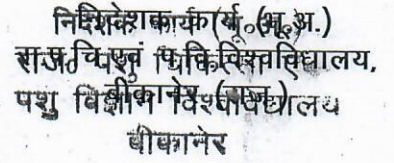 निदेशक कार्य (भू.अ.)
रा.प.चि.एवं प.वि.विश्वविद्यालय,
बीकानेर (राज.)
पशु विज्ञान विश्वविद्यालय
बीकानेर